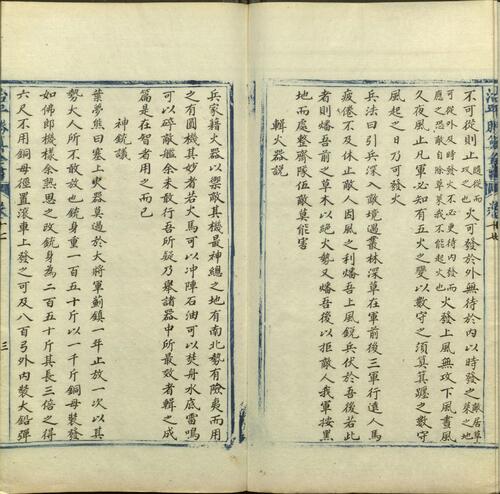 不可從則止隨從而攻也火可發於外無待於內以時發之敵居草萊之地
可從外及時發火不必更待內發而應之恐敵自除草萊我不能起火也火發上風無攻下風晝風
久夜風止凡軍必知有五火之變以數守之須算其躔之數守
風起之日乃可發火
兵法曰引兵深入敵境遇叢林深草在軍前後三軍行遠人馬
疲倦不及休止敵人因風之利燔吾上風銳兵伏於吾後若此
者則燔吾前之草木以絕火勢又燔吾後以拒敵人我軍按黑
地而處整齊隊伍敵莫能害
輯火器說
兵家籍火器以禦敵其機最神總之地有南北勢有險夷而用
之有圓機其妙者若火馬可以冲陣石油可以焚舟水底雷鳴
可以碎敵艦余未敢行吾所錠乃舉諸器中所最效者輯之成
篇是在智者用之而已
神銃議
葉夢熊曰塞上火器莫過於大將軍薊鎮一年止放一次以其
勢大人所不敢放也銃身重一百五十斤以一千斤銅母裝發
如佛郎機樣余熟思之改銃身為二百五十斤其長三倍之得
六尺不用銅母徑置滾車上發之可及八百弓外內裝大鉛彈
三